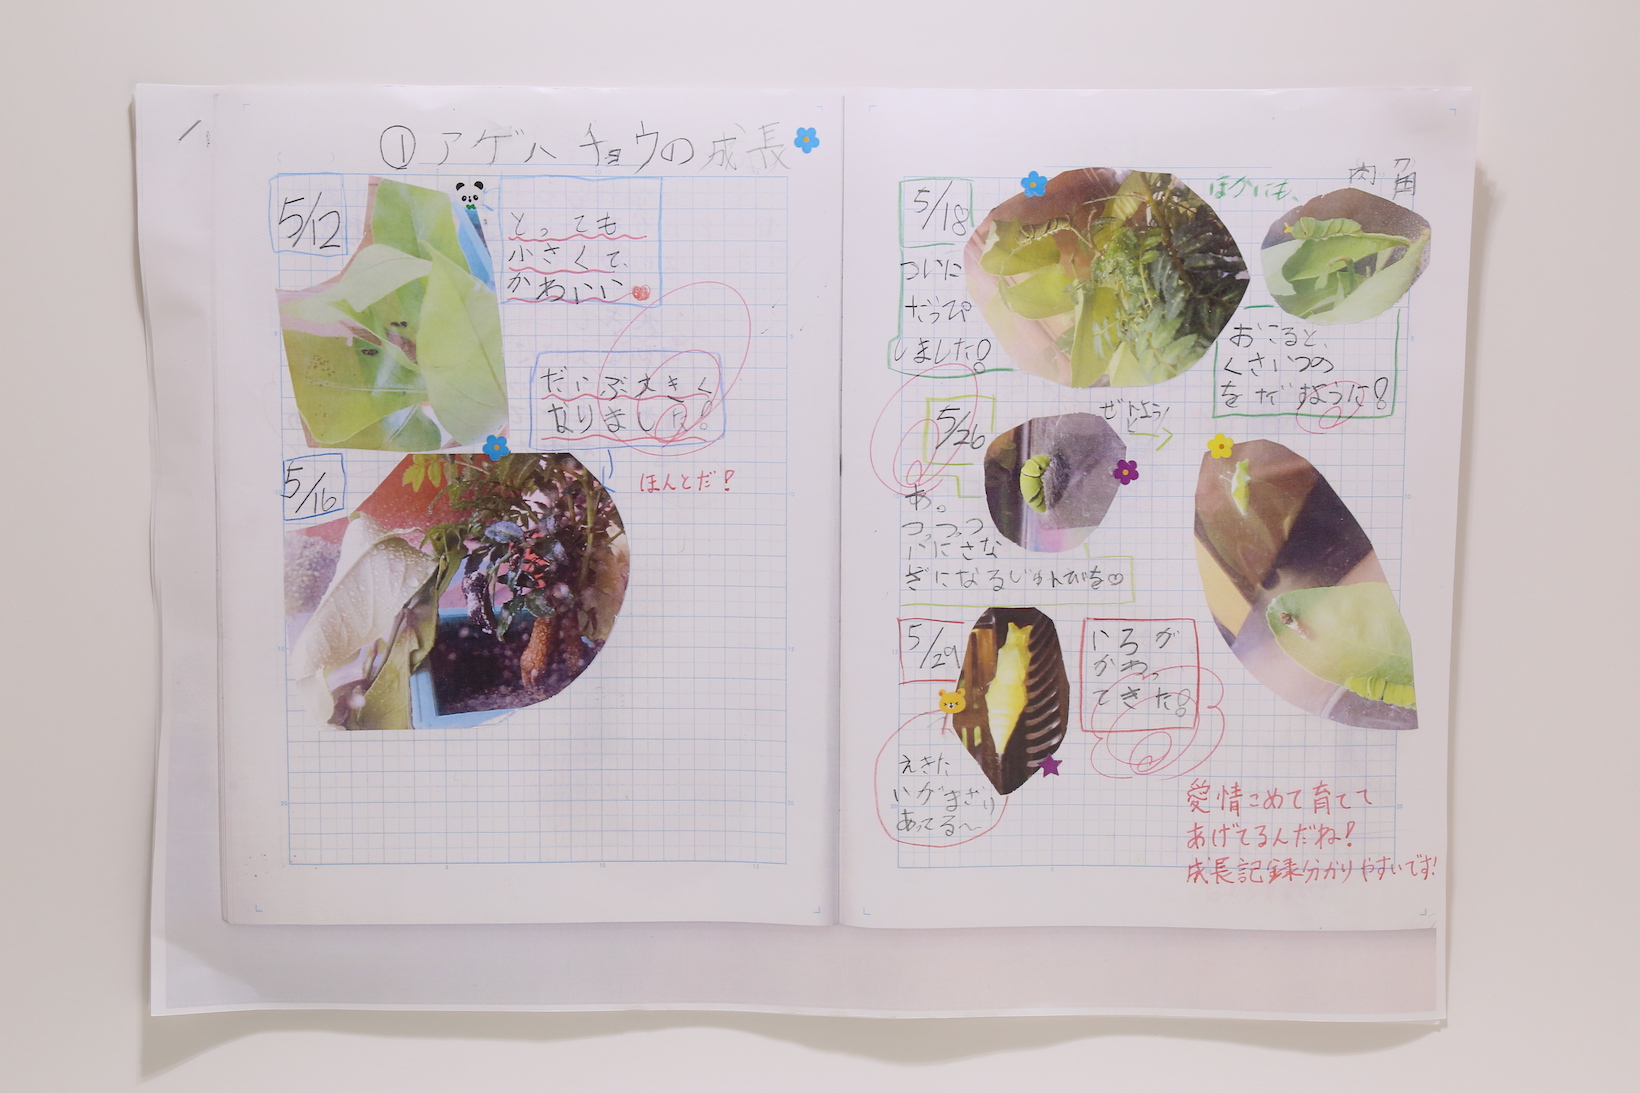 ① アゲハチョウの成長
5/12
とっても
小さくて、
かわいい
だいぶ大きく
なりました!
5/16
ほんとだ!
5/18
ついに
だっぴ
しました!
ほかにも、
肉角
おこると、
くさいつの
をだすように!
5/26
ぜんよう
あっ。
ついにさな
ぎになるじゅんびを♡
5/29
いろが
かわっ
てきた!
えきた
いがまざり
あってる〜
愛情こめて育てて
あげてるんだね!
成長記録分かりやすいです!